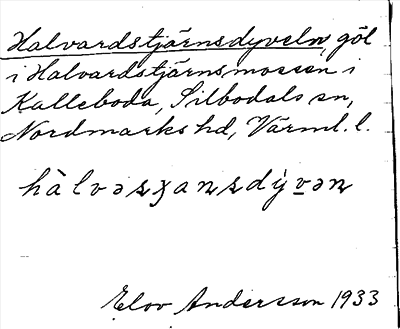 Halvardstjärnsdyveln, göl
i Halvardstjärnsmossen i
Kalleboda, Silbodals sn,
Nordmarks hd, Värml. l.
hàlvəsʂanʂdývən
Elov Andersson 1933